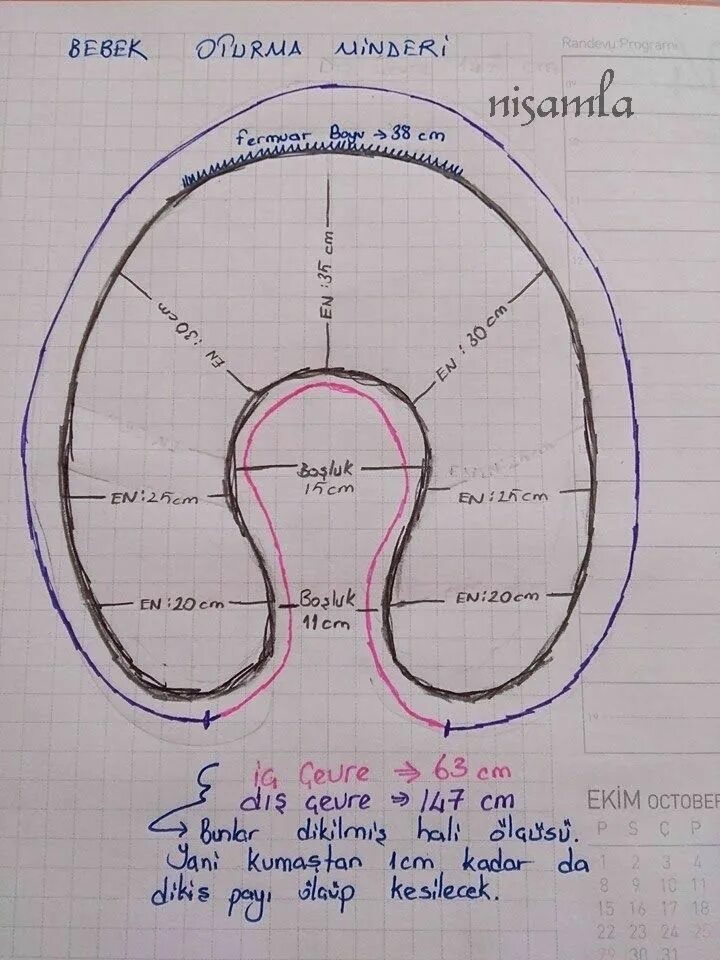 BEBEK OTURMA MİNDERİ
Randevu Programı
nisamla
fermuar Boyu → 38 cm
EN : 35 cm
EN : 30 cm
EN : 30 cm
Boşluk
15 cm
EN : 25 cm
EN : 25 cm
EN : 20 cm
Boşluk
11 cm
EN : 20 cm
iç Çevre ⇒ 63 cm
dış çevre ⇒ 147 cm
→ Bunlar dikilmiş hali ölçüsü.
Yani kumaştan 1cm kadar da
dikiş payı ölçüp kesilecek.
EKİM OCTOBER
P S Ç P
1 2 3 4
8 9 10 11
15 16 17 18
22 23 24 25
29 30 31